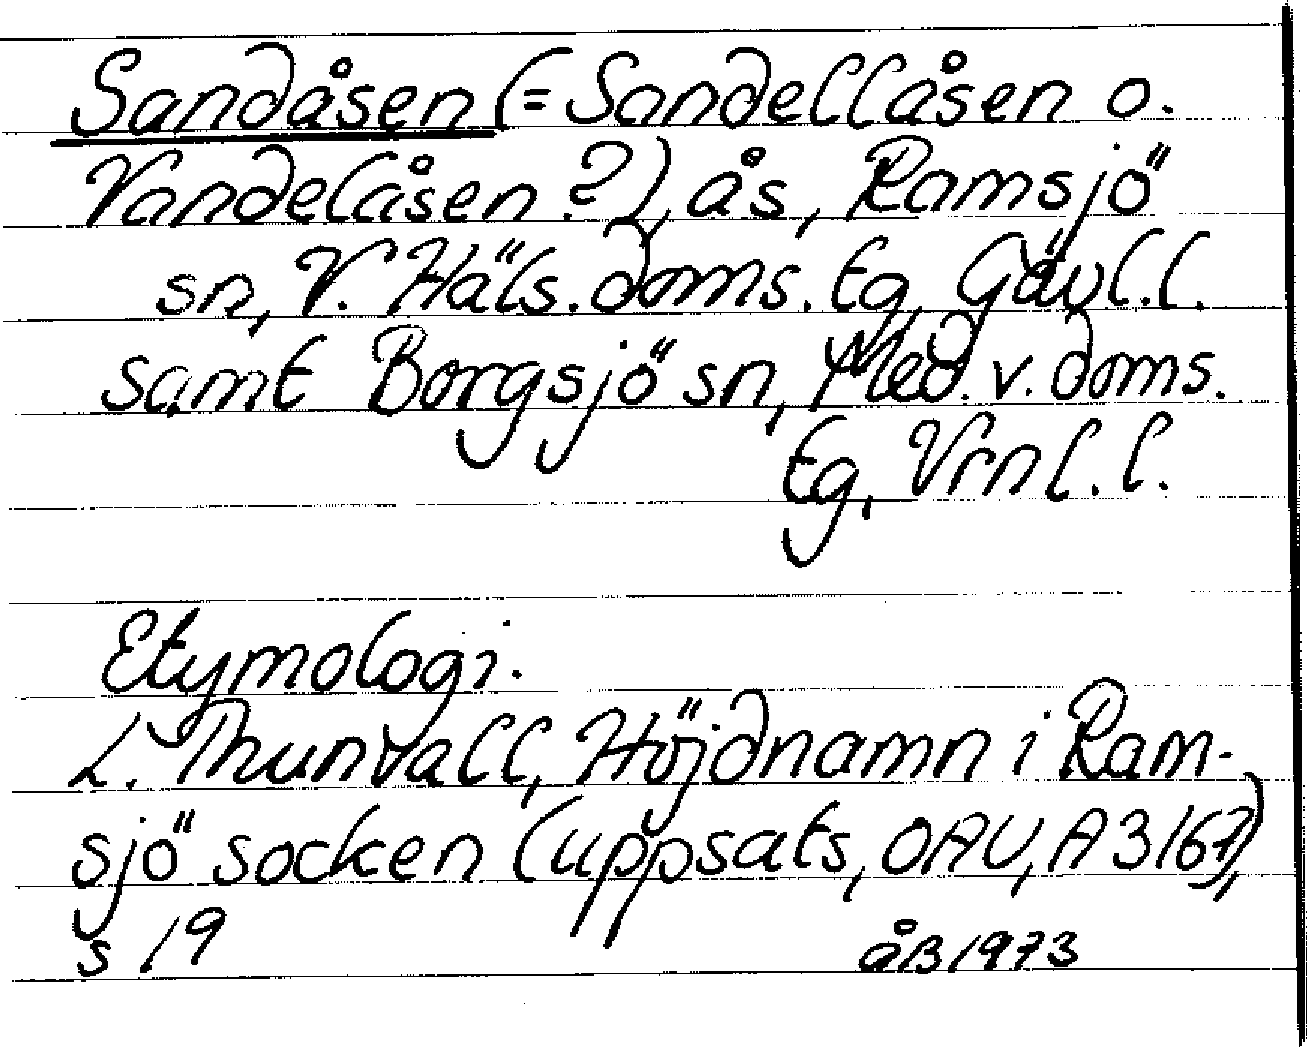 Sandåsen (= Sandellåsen o.
Vandelåsen?), ås, Ramsjö
sn, V. Häls. doms. tg, Gävl. l.
samt Borgsjö sn, Med. v. doms.
tg, Vrnl. l.
Etymologi.
L. Thunvall, Höjdnamn i Ram-
sjö socken (uppsats, OAU, A 3167),
s 19
åB 1973